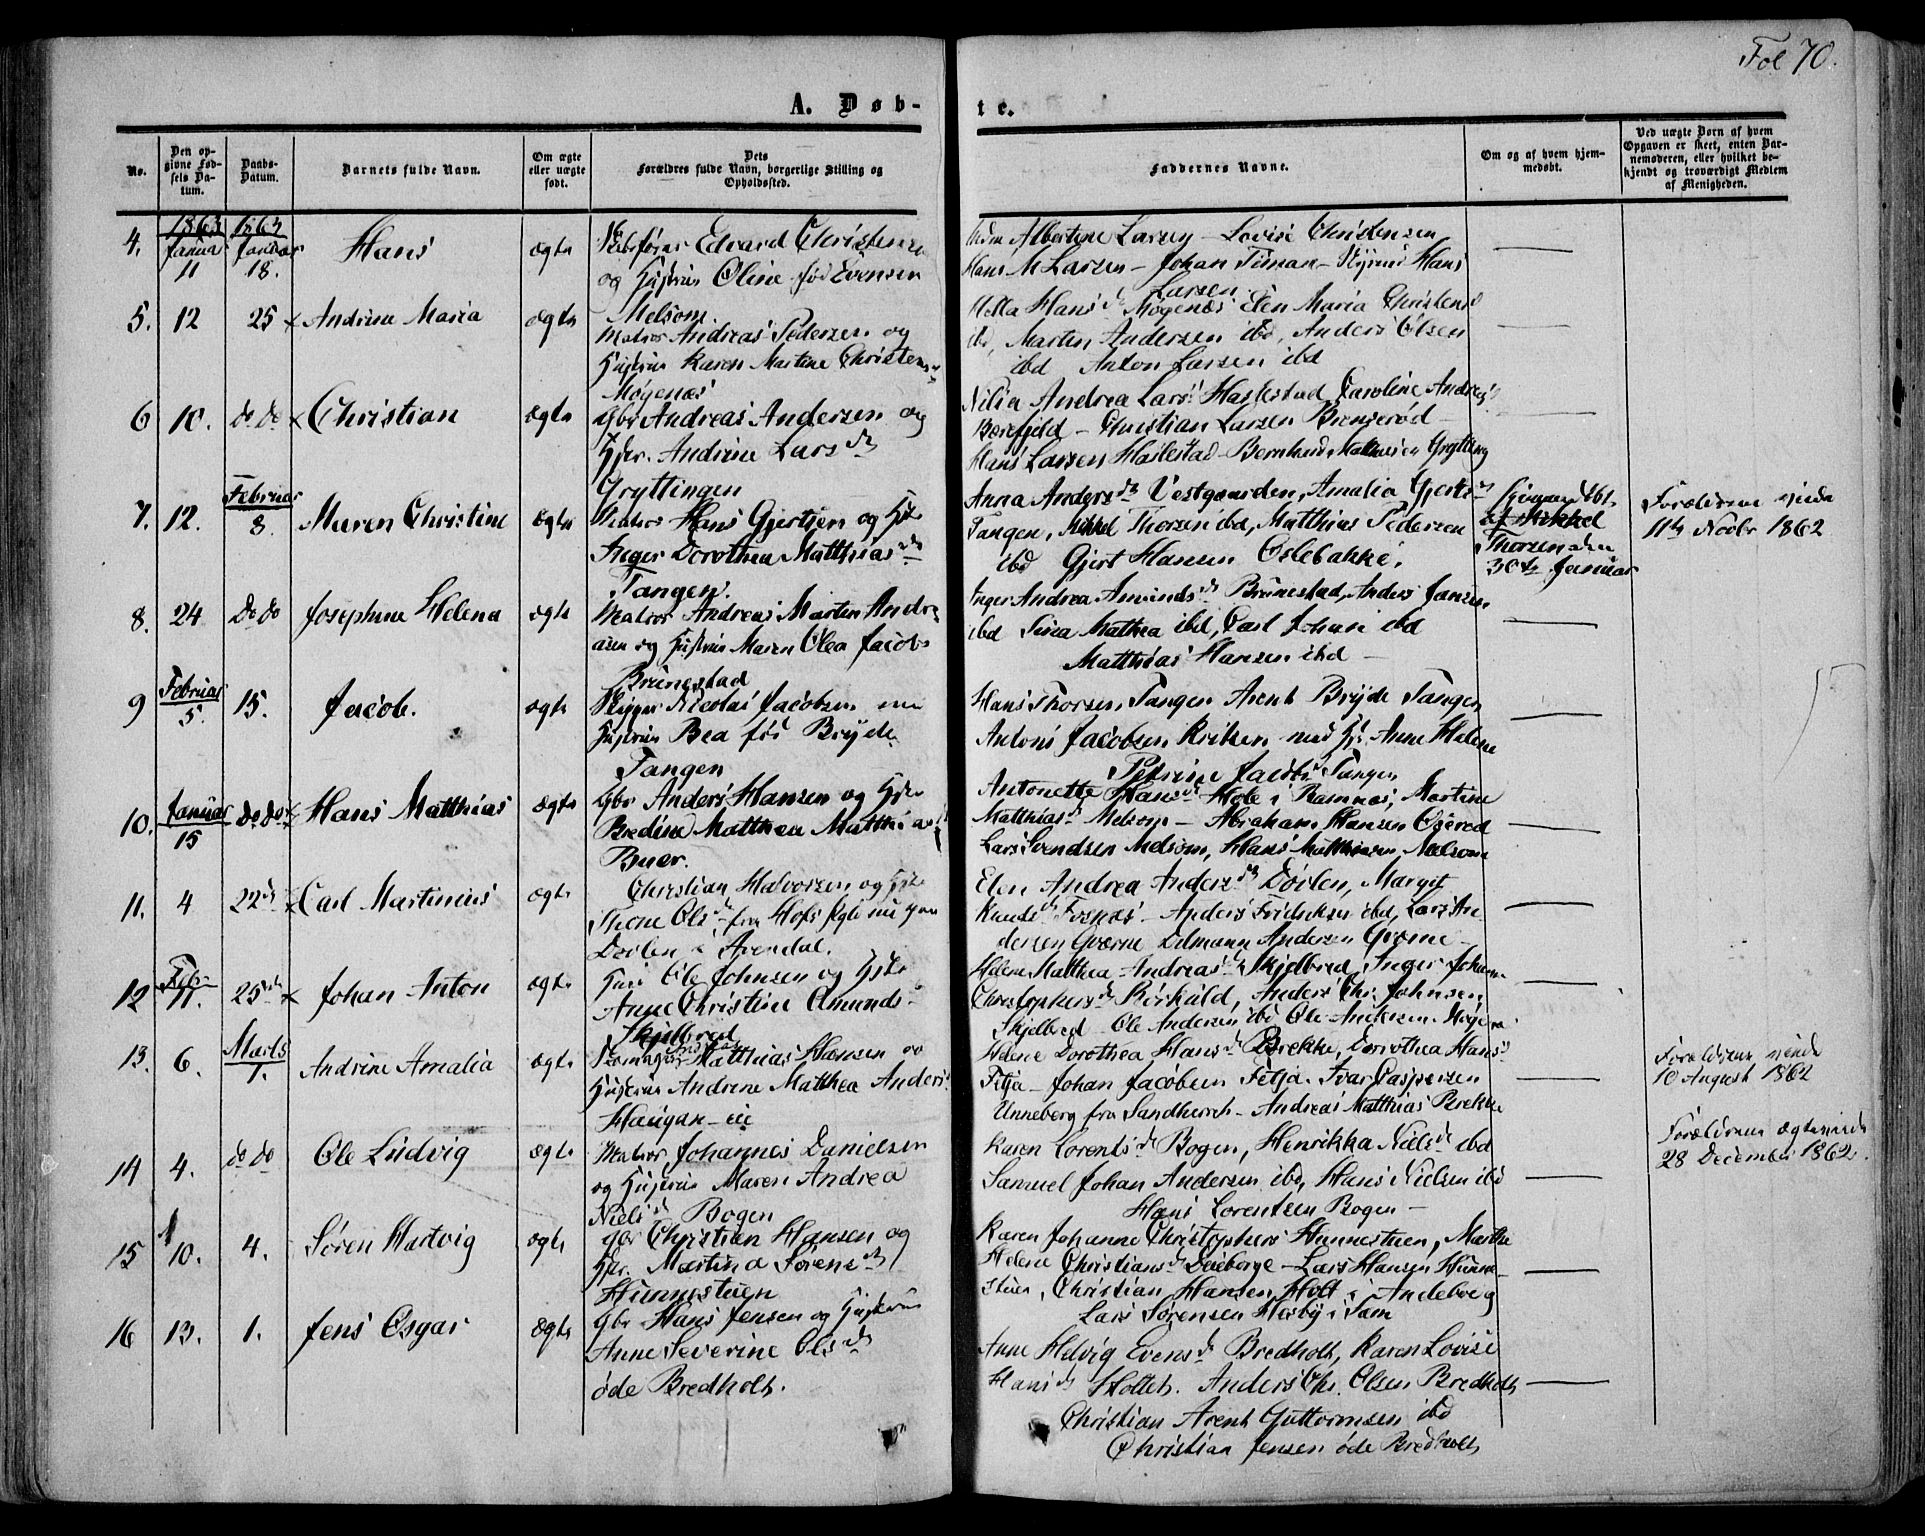 Fol 70.
A. Døb-
te.
No.
Den op-
givne Fød-
sels Da-
tum.
Daabs-
Datum.
Barnets fulde Navn.
Om ægte
eller uægte
født.
Dets
Forældres fulde Navn, borgerlige Stilling og
Opholdssted.
Faddernes Navne.
Om og af hvem hjem-
medøbt.
Ved uægte Børn af hvem
Opgaven er skeet, enten Bar-
nemoderen, eller hvilket be-
kjendt og troværdigt Medlem
af Menigheden.
1863 1863
4. Januar 11 Januar 18. Hans ægte
Edvard Christensen
og Hustrue Oline fød Evensen
Melsom
Albertine Larsen - Lovise Christensen
Hans M Larsen - Johan Timan - Hans
Larsen
5. 12 25 x Andrine Maria ægte
Matros Andreas Pedersen og
Hustrue Karen Martine Christens
Møgenæs
Hans d Møgenæs Elen Maria Christens
ibd, Martin Andersen ibd, Anders Olsen
ibd Anton Larsen ibd
6 10. do do x Christian ægte
Gbr Andreas Andersen og
Hstr. Andrine Lars d
Gryttingen
Andrea Lars Haslestad Caroline Andreas
Bærefjeld - Christian Larsen Brenserød -
Hans Larsen Haslestad - Bernhard Grytting
7. 12. Februar 8. Maren Christine ægte
Matros Hans Gjertsen og Hstr
Inger Dorothea Matthias d
Tangen.
Anna Anders d Vestgaarden, Amalia Gjerts d
Tangen, Mikkel Thorsen ibd, Matthias Pedersen
ibd Gjert Hansen Oslebakke.
af Mikkel
Thorsen den
30te Januar
Forældrene viede
11te Novbr 1862
8. 24 Do do Josephine Helena ægte
Matros Andreas Martin Andre-
asen og Hustrue Maren Olea Jacobs
Brunestad
Inger Andrea Amunds d Brunestad, Anders Jansen
ibd Tina Mathea ibd, Carl Johan ibd
Matthias Hansen ibd -
9 Februar 5. 15. Jacob. ægte
Skipper Nicolai Jacobsen
Hustrue Bea fød Bryde
Tangen
Hans Thorsen Tangen Arent Bryde Tangen
Antoni Jacobsen med Anne Helene
Petrine Jacobs d Tangen
10. Januar 15 do do x Hans Matthias ægte
Gbr Anders Hansen og Hstr
Bredine Matthea Matthias
Buer.
Antonette Hans d Hole i Ramnæs, Martine
Matthias d Melsom - Abraham Hansen
Lars Svendsen Melsom, Hans Matthisen Melsom
11. 4 22d x Carl Martinius ægte
Christian Halvorsen og Hstr
Thone Ols d fra
Arendal.
Elen Andrea Anders d Døvlen, Margit
Knuds d Fosnæs - Anders Fredriksen ibd, Lars An-
dersen Gværne Andersen
12 Febr 11. 25de x Johan Anton ægte
Ole Johnsen og Hstr
Anne Christine Amunds d
Skjelbred
Helene Matthea Andreas d Skjelbred, Inger Johan
Christophers d Anders Chr. Johnsen
Skjelbred - Ole Andersen ibd Ole Andersen
13. 6. Marts 1. Andrine Amalia ægte
Matthias Hansen og
Hustrue Andrine Matthea Anders
Haugan - eie
Helene Dorothea Hans d Brekke, Dorothea Hans
Fitja - Johan Jacobsen Fitja. Ivar Caspersen
Unneberg fra Sandherred - Andreas Matthias Brekke
Forældrene viede
10 August 1862
14 4. do do Ole Ludvig ægte
Matros Johannes Danielsen
og Hustrue Maren Andrea
Niels d Bogen
Karen Lorents d Bogen, Henrikka Niels d ibd
Samuel Johan Andersen ibd, Hans Nielsen ibd
Hans Lorentsen Bogen -
Forældrene ægteviede
28 December 1862.
15 10. 4. Søren Hartvig ægte
Gbr Christian Hansen og
Hstr. Martina Sørens d
Hunnestuen
Karen Johanne Christophers Hunnestuen, Marthe
Helene Christians d - Lars Hansen Hunne-
stuen, Christian Hansen Holt i Andeberg
Lars Sørensen Hæsby i Sæm
16 13. 1. Jens Osgar ægte
Gbr Hans Jensen og Hustrue
Anne Severine Ols d
øde Bredholt.
Anne Helvig Evens d Bredholt, Karen Lovise
Hans d Holtet. Anders Chr. Olsen Bredholt
Christian Arent Guttormsen ibd
Christian Jensen øde Bredholt